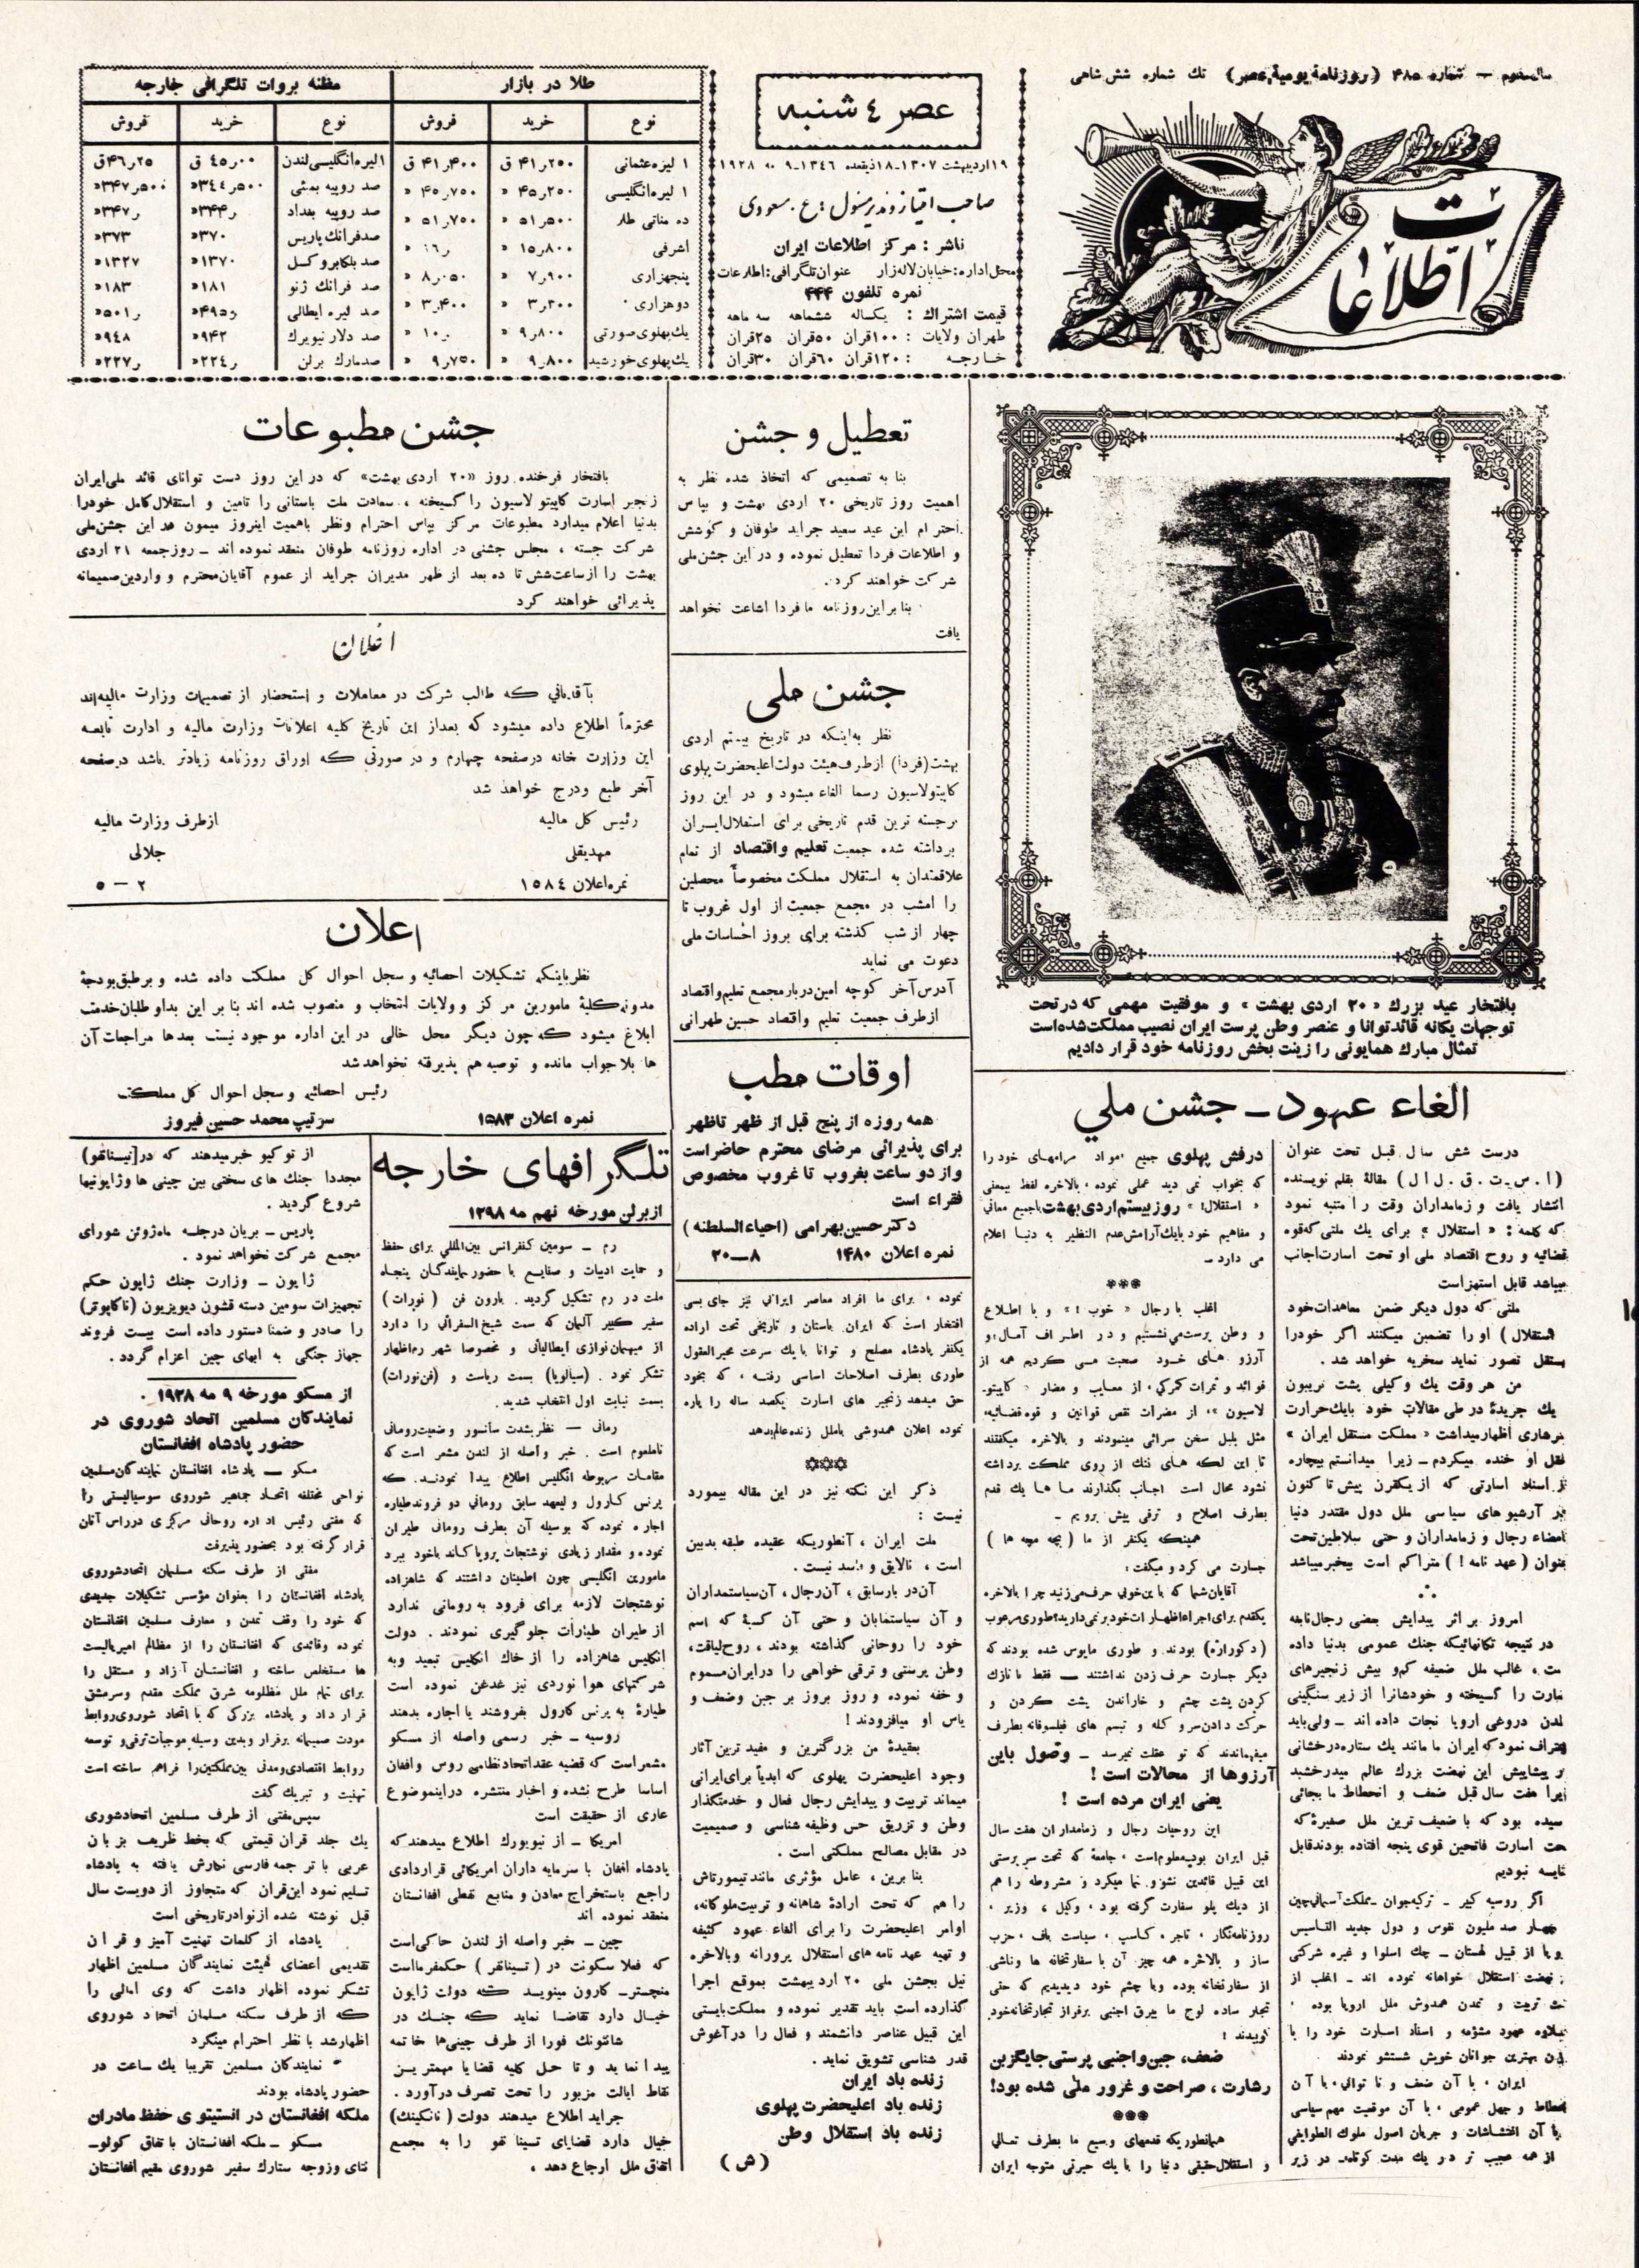 سال سوم – شماره ۴۸۵ (روزنامهٔ یومیهٔ عصر) تك شماره شش شاهی
اطلاعات
عصر ٤ شنبه
۱۹ اردیبهشت ۱۳۰۷ـ۱۸ ذیقعده ۱۳٤٦ـ۹ مه ۱۹۲۸
صاحب امتیاز و مدیر مسئول : ع . مسعودی
ناشر : مرکز اطلاعات ایران
محل اداره: خیابان لاله زار عنوان تلگرافی: اطلاعات
نمره تلفون ۴۴۴
قیمت اشتراك : یکساله ششماهه سه ماهه
طهران ولایات : ۱۰۰قران ۵۰قران ۲۵قران
خارجه : ۱۲۰قران ۶۰قران ۳۰قران
طلا در بازار
نوع خرید فروش
۱ لیره عثمانی ۴۱٫۲۵۰ ق ۴۱٫۴۰۰ ق
۱ لیره انگلیسی ۴۵٫۲۵۰ « ۴۵٫۷۵۰ «
ده مناتی طلا ۵۱٫۵۰۰ « ۵۱٫۷۰۰ «
اشرفی ۱۵٫۸۰۰ « ۱۶٫ «
پنجهزاری ۷٫۹۰۰ « ۸٫۰۵۰ «
دوهزاری ۳٫۲۰۰ « ۳٫۴۰۰ «
یك پهلوی صورتی ۹٫۸۰۰ « ۱۰٫ «
یك پهلوی خورشید ۹٫۸۰۰ « ۹٫۷۵۰ «
مظنه بروات تلگرافی خارجه
نوع خرید فروش
۱ لیره انگلیسی لندن ٤٥٫۰۰ ق ۴۶٫۲۵ ق
صد روپیه بمبئی ۳٤٤٫۵۰۰« ۳۴۷٫۵۰۰«
صد روپیه بغداد ۳۴۴٫« ۳۴۷٫«
صد فرانك پاریس ۳۷۰« ۳۷۳«
صد بلکا بروکسل ۱۳۷۰« ۱۳۲۷«
صد فرانك ژنو ۱۸۱« ۱۸۳«
صد لیره ایطالی ۴۹۵٫« ۵۰۱٫«
صد دلار نیویرك ۹۴۲« ۹۴۸«
صد مارك برلن ۲۲٤٫« ۲۲۷٫«
بافتخار عید بزرك « ۲۰ اردی بهشت » و موفقیت مهمی که در تحت
توجهات یگانه قائد توانا و عنصر وطن پرست ایران نصیب مملکت شده است
تمثال مبارك همایونی را زینت بخش روزنامه خود قرار دادیم
الغاء عهود ـ جشن ملي
درست شش سال قبل تحت عنوان
(ا. س-ت. ق. ل ا ل) مقالهٔ بقلم نویسنده
انتشار یافت و زمامداران وقت را متنبه نمود
که کلمه : « استقلال » برای یك ملتی که قوه
قضائیه و روح اقتصاد ملی او تحت اسارت اجانب
میباشد قابل استهزاست
ملتی که دول دیگر ضمن معاهدات خود
استقلال) او را تضمین میکنند اگر خود را
مستقل تصور نماید سخریه خواهد شد .
من هر وقت یك وکیلی پشت تریبون
یك جریدهٔ در طی مقالات خود با یك حرارت
سرشاری اظهار میداشت « مملکت مستقل ایران »
بعقل او خنده میکردم ـ زیرا میدانستم بیچاره
از اسناد اسارتی که از یکقرن پیش تا کنون
در آرشیو های سیاسی ملل دول مقتدر دنیا
بامضاء رجال و زمامداران و حتی سلاطین تحت
عنوان ( عهد نامه ! ) متراکم است بیخبر میباشد
امروز بر اثر پیدایش بعضی رجال نابغه
در نتیجه تکانهائیکه جنك عمومی بدنیا داده
است ، غالب ملل ضعیفه کم و بیش زنجیر های
اسارت را گسیخته و خودشانرا از زیر سنگینی
تمدن دروغی اروپا نجات داده اند ـ ولی باید
اعتراف نمود که ایران ما مانند یك ستاره درخشانی
در پیشاپیش این نهضت بزرك عالم میدرخشد
زیرا هفت سال قبل ضعف و انحطاط ما بجائی
رسیده بود که با ضعیف ترین ملل صغیره که
تحت اسارت فاتحین قوی پنجه افتاده بودند قابل
مقایسه نبودیم
اگر روسیه کبیر ـ ترکیه جوان ـ مملکت آسمانی چین
چهار صد ملیون نفوس و دول جدید التاسیس
اروپا از قبیل لهستان ـ چك اسلوا و غیره شرکتی
در نهضت استقلال خواهانه نموده اند ـ اغلب از
حیث تربیت و تمدن همدوش ملل اروپا بوده ،
بعلاوه عهود مشئومه و اسناد اسارت خود را با
خون بهترین جوانان خویش شستشو نمودند
ایران ، با آن ضعف و نا توانی ، با آن
انحطاط و جهل عمومی ، با آن موقعیت مهم سیاسی
با آن اغتشاشات و جریان اصول ملوك الطوایفی
از همه عجیب تر در یك مدت کوتاه در زیر
درفش پهلوی جمیع مواد مرامهای خود را
که بخواب نمی دید عملی نموده ، بالاخره لفظ بیمعنی
« استقلال! » روز بیستم اردی بهشت با جمیع معانی
و مفاهیم خود با یك آرامش عدم النظیر به دنیا اعلام
می دارد ـ
***
اغلب با رجال « خوب !» و با اطلاع
و وطن پرست می نشستیم و در اطراف آمال و
آرزو های خود صحبت می کردیم همه از
فوائد و ثمرات گمرکی ، از معایب و مضار « کاپیتو-
لاسیون »، از مضرات نقص قوانین و قوه قضائیه،
مثل بلبل سخن سرائی مینمودند و بالاخره میگفتند
تا این لکه های ننك از روی مملکت برداشته
نشود محال است اجانب بگذارند ما ها یك قدم
بطرف اصلاح و ترقی پیش برویم ـ
همینکه یکنفر از ما ( بچه مچه ها )
جسارت می کرد و میگفت :
آقایان شما که باین خوبی حرف میزنید چرا بالاخره
یکقدم برای اجراء اظهارات خود برنمی دارید؟ طوری مرعوب
(دکوراژه) بودند و طوری مایوس شده بودند که
دیگر جسارت حرف زدن نداشتند ـ فقط با نازك
کردن پشت چشم و خاراندن پشت گردن و
حرکت دادن سر و کله و تبسم های فیلسوفانه بطرف
میفهماندند که تو عقلت نمیرسد ـ وصول باین
آرزوها از محالات است !
یعنی ایران مرده است !
این روحیات رجال و زمامداران هفت سال
قبل ایران بود، معلوم است ، جامعهٔ که تحت سرپرستی
این قبیل قائدین نشو و نما میکرد و مشروطه را هم
از دیك پلو سفارت گرفته بود ، وکیل ، وزیر ،
روزنامه نگار ، تاجر ، کاسب ، سیاست باف ، حزب
ساز و بالاخره همه چیز آن با سفارتخانه ها و ناشی
از سفارتخانه بوده و با چشم خود دیدیم که حتی
تجار ساده لوح ما بیرق اجنبی برفراز تجارتخانه خود
کوبیدند !
ضعف، جبن و اجنبی پرستی جایگزین
رشارت ، صراحت و غرور ملی شده بود!
***
همانطوریکه قدمهای وسیع ما بطرف تعالی
و استقلال حقیقی دنیا را با یك حیرتی متوجه ایران
تعطیل و جشن
بنا به تصمیمی که اتخاذ شده نظر به
اهمیت روز تاریخی ۲۰ اردی بهشت و بپاس
احترام این عید سعید جراید طوفان و کوشش
و اطلاعات فردا تعطیل نموده و در این جشن ملی
شرکت خواهند کرد.
بنا بر این روزنامه ما فردا اشاعت نخواهد
یافت
جشن ملی
نظر به اینکه در تاریخ بیستم اردی
بهشت (فردا) از طرف هیئت دولت اعلیحضرت پهلوی
کاپیتولاسیون رسما الغاء میشود و در این روز
برجسته ترین قدم تاریخی برای استقلال ایران
برداشته شده جمعیت تعلیم و اقتصاد از تمام
علاقمندان به استقلال مملکت مخصوصاً محصلین
را امشب در مجمع جمعیت از اول غروب تا
چهار از شب گذشته برای بروز احساسات ملی
دعوت می نماید
آدرس آخر کوچه امین دربار مجمع تعلیم و اقتصاد
از طرف جمعیت تعلیم و اقتصاد حسین طهرانی
اوقات مطب
همه روزه از پنج قبل از ظهر تا ظهر
برای پذیرائی مرضای محترم حاضر است
و از دو ساعت بغروب تا غروب مخصوص
فقراء است
دکتر حسین بهرامی (احیاء السلطنه )
نمره اعلان ۱۴۸۰ ۸ـ۲۰
نموده ، برای ما افراد معاصر ایرانی نیز جای بسی
افتخار است که ایران باستان و تاریخی تحت اراده
یکنفر پادشاه مصلح و توانا با یك سرعت محیرالعقول
طوری بطرف اصلاحات اساسی رفته ، که بخود
حق میدهد زنجیر های اسارت یکصد ساله را پاره
نموده اعلان همدوشی با ملل زنده عالم بدهد
***
ذکر این نکته نیز در این مقاله بیمورد
نیست :
ملت ایران ، آنطوریکه عقیده طبقه بدبین
است ، نالایق و فاسد نیست .
آن دربار سابق ، آن رجال ، آن سیاستمداران
و آن سیاستمابان و حتی آن کسبهٔ که اسم
خود را روحانی گذاشته بودند ، روح لیاقت،
وطن پرستی و ترقی خواهی را در ایران مسموم
و خفه نموده و روز بروز بر جبن و ضعف و
یاس او میافزودند !
بعقیدهٔ من بزرگترین و مفید ترین آثار
وجود اعلیحضرت پهلوی که ابدیاً برای ایرانی
میماند تربیت و پیدایش رجال فعال و خدمتگذار
وطن و تزریق حس وظیفه شناسی و صمیمیت
در مقابل مصالح مملکتی است .
بنا برین ، عامل مؤثری مانند تیمورتاش
را هم که تحت ارادهٔ شاهانه و تربیت ملوکانه،
اوامر اعلیحضرت را برای الغاء عهود کثیفه
و تهیه عهد نامه های استقلال پرورانه و بالاخره
نیل بجشن ملی ۲۰ اردیبهشت بموقع اجرا
گذارده است باید تقدیر نموده و مملکت بایستی
این قبیل عناصر دانشمند و فعال را در آغوش
قدر شناسی تشویق نماید .
زنده باد ایران
زنده باد اعلیحضرت پهلوی
زنده باد استقلال وطن
( ش )
جشن مطبوعات
بافتخار فرخنده روز «۲۰ اردی بهشت» که در این روز دست توانای قائد ملی ایران
زنجیر اسارت کاپیتولاسیون را گسیخته ، سعادت ملت باستانی را تامین و استقلال کامل خود را
بدنیا اعلام میدارد مطبوعات مرکز بپاس احترام و نظر باهمیت اینروز میمون در این جشن ملی
شرکت جسته ، مجلس جشنی در اداره روزنامه طوفان منعقد نموده اند ـ روز جمعه ۲۱ اردی
بهشت را از ساعت شش تا ده بعد از ظهر مدیران جراید از عموم آقایان محترم و واردین صمیمانه
پذیرائی خواهند کرد
اعلان
بآقایانی که طالب شرکت در معاملات و استحضار از تصمیمات وزارت مالیه اند
محترماً اطلاع داده میشود که بعد از این تاریخ کلیه اعلانات وزارت مالیه و ادارت تابعه
این وزارت خانه در صفحه چهارم و در صورتی که اوراق روزنامه زیادتر باشد در صفحه
آخر طبع و درج خواهد شد
رئیس کل مالیه از طرف وزارت مالیه
مهدیقلی جلالی
نمره اعلان ۱۵۸٤ ۲ – ۵
اعلان
نظر باینکه تشکیلات احصائیه و سجل احوال کل مملکت داده شده و بر طبق بودجهٔ
مدونه کلیهٔ مامورین مرکز و ولایات انتخاب و منصوب شده اند بنا بر این بداوطلبان خدمت
ابلاغ میشود که چون دیگر محل خالی در این اداره موجود نیست بعدها مراجعات آن
ها بلا جواب مانده و توصیه هم پذیرفته نخواهد شد
رئیس احصائیه و سجل احوال کل مملکت
نمره اعلان ۱۵۸۳ سرتیپ محمد حسین فیروز
تلگرافهای خارجه
از برلن مورخه نهم مه ۱۲۹۸
رم ـ سومین کنفرانس بین المللی برای حفظ
و حمایت ادبیات و صنایع با حضور نمایندگان پنجاه
ملت در رم تشکیل گردید . بارون فن ( نورات)
سفیر کبیر آلمان که سمت شیخ السفرائی را دارد
از میهمان نوازی ایطالیائی و مخصوصا شهر رم اظهار
تشکر نمود . (سیالویا) بسمت ریاست و (فن نورات)
بسمت نیابت اول انتخاب شدید .
رمانی – نظر بشدت سانسور وضعیت رومانی
نامعلوم است . خبر واصله از لندن مشعر است که
مقامات مربوطه انگلیس اطلاع پیدا نمودند که
پرنس کارول و لیعهد سابق رومانی دو فروند طیاره
اجاره نموده که بوسیله آن بطرف رومانی طیران
نموده و مقدار زیادی نوشتجات پروپاکاند با خود ببرد
مامورین انگلیسی چون اطمینان داشتند که شاهزاده
نوشتجات لازمه برای فرود به رومانی ندارد
از طیران طیارات جلوگیری نمودند . دولت
انگلیس شاهزاده را از خاك انگلیس تبعید و به
شرکتهای هوا نوردی نیز غدغن نموده است
طیارهٔ به پرنس کارول بفروشند یا اجاره بدهند
روسیه ـ خبر رسمی واصله از مسکو
مشعر است که قضیه عقد اتحاد نظامی روس و افغان
اساسا طرح نشده و اخبار منتشره در اینموضوع
عاری از حقیقت است
امریکا ـ از نیویورك اطلاع میدهند که
پادشاه افغان با سرمایه داران امریکائی قراردادی
راجع باستخراج معادن و منابع نفطی افغانستان
منعقد نموده اند
چین ـ خبر واصله از لندن حاکی است
که فعلا سکونت در ( تسیناقر ) حکمفرما است
منچستر- کارون مینویسد که دولت ژاپون
خیال دارد تقاضا نماید که جنك در
شانتونك فورا از طرف چینی ها خاتمه
پیدا نماید و تا حل کلیه قضایا مهمترین
نقاط ایالت مزبور را تحت تصرف درآورد .
جراید اطلاع میدهند دولت ( نانکینك)
خیال دارد قضایای تسینا تفو را به مجمع
اتفاق ملل ارجاع دهد ،
از توکیو خبر میدهند که در[تیسناتفو)
مجددا جنك های سختی بین چینی ها و ژاپونیها
شروع گردید .
پاریس ـ بریان در جلسه ماه ژوئن شورای
مجمع شرکت نخواهد نمود .
ژاپون ـ وزارت جنك ژاپون حکم
تجهیزات سومین دسته قشون دیویزیون (ناکاپوتر)
را صادر و ضمنا دستور داده است بیست فروند
جهاز جنگی به ابهای چین اعزام گردد .
از مسکو مورخه ۹ مه ۱۹۲۸ .
نمایندگان مسلمین اتحاد شوروی در
حضور پادشاه افغانستان
مسکو ـ پادشاه افغانستان نمایندگان مسلمین
نواحی مختلفه اتحاد جماهیر شوروی سوسیالیستی را
که مفتی رئیس اداره روحانی مرکزی در راس آنان
قرار گرفته بود بحضور پذیرفت
مفتی از طرف سکنه مسلمان اتحاد شوروی
پادشاه افغانستان را بعنوان مؤسس تشکیلات جدیدی
که خود را وقف تمدن و معارف مسلمین افغانستان
نموده و قائدی که افغانستان را از مظالم امپریالیست
ها مستخلص ساخته و افغانستان آزاد و مستقل را
برای تمام ملل مظلومه شرق مملکت مقدم و سرمشق
قرار داد و پادشاه بزرگی که با اتحاد شوروی روابط
مودت صمیمانه برقرار و بدین وسیله موجبات ترقی و توسعه
روابط اقتصادی و مدنی بین مملکتین را فراهم ساخته است
تهنیت و تبریك گفت
سپس مفتی از طرف مسلمین اتحاد شوروی
یك جلد قران قیمتی که بخط ظریف بزبان
عربی با ترجمه فارسی نگارش یافته به پادشاه
تسلیم نمود این قران که متجاوز از دویست سال
قبل نوشته شده از نوادر تاریخی است
پادشاه از کلمات تهنیت آمیز و قران
تقدیمی اعضای هیئت نمایندگان مسلمین اظهار
تشکر نموده اظهار داشت که وی امالی را
که از طرف سکنه مسلمان اتحاد شوروی
اظهار شد با نظر احترام مینگرد
نمایندگان مسلمین تقریبا یك ساعت در
حضور پادشاه بودند
ملکه افغانستان در انستیتوی حفظ مادران
مسکو ـ ملکه افغانستان با تفاق کولو-
نتای و زوجه ستارك سفیر شوروی مقیم افغانستان